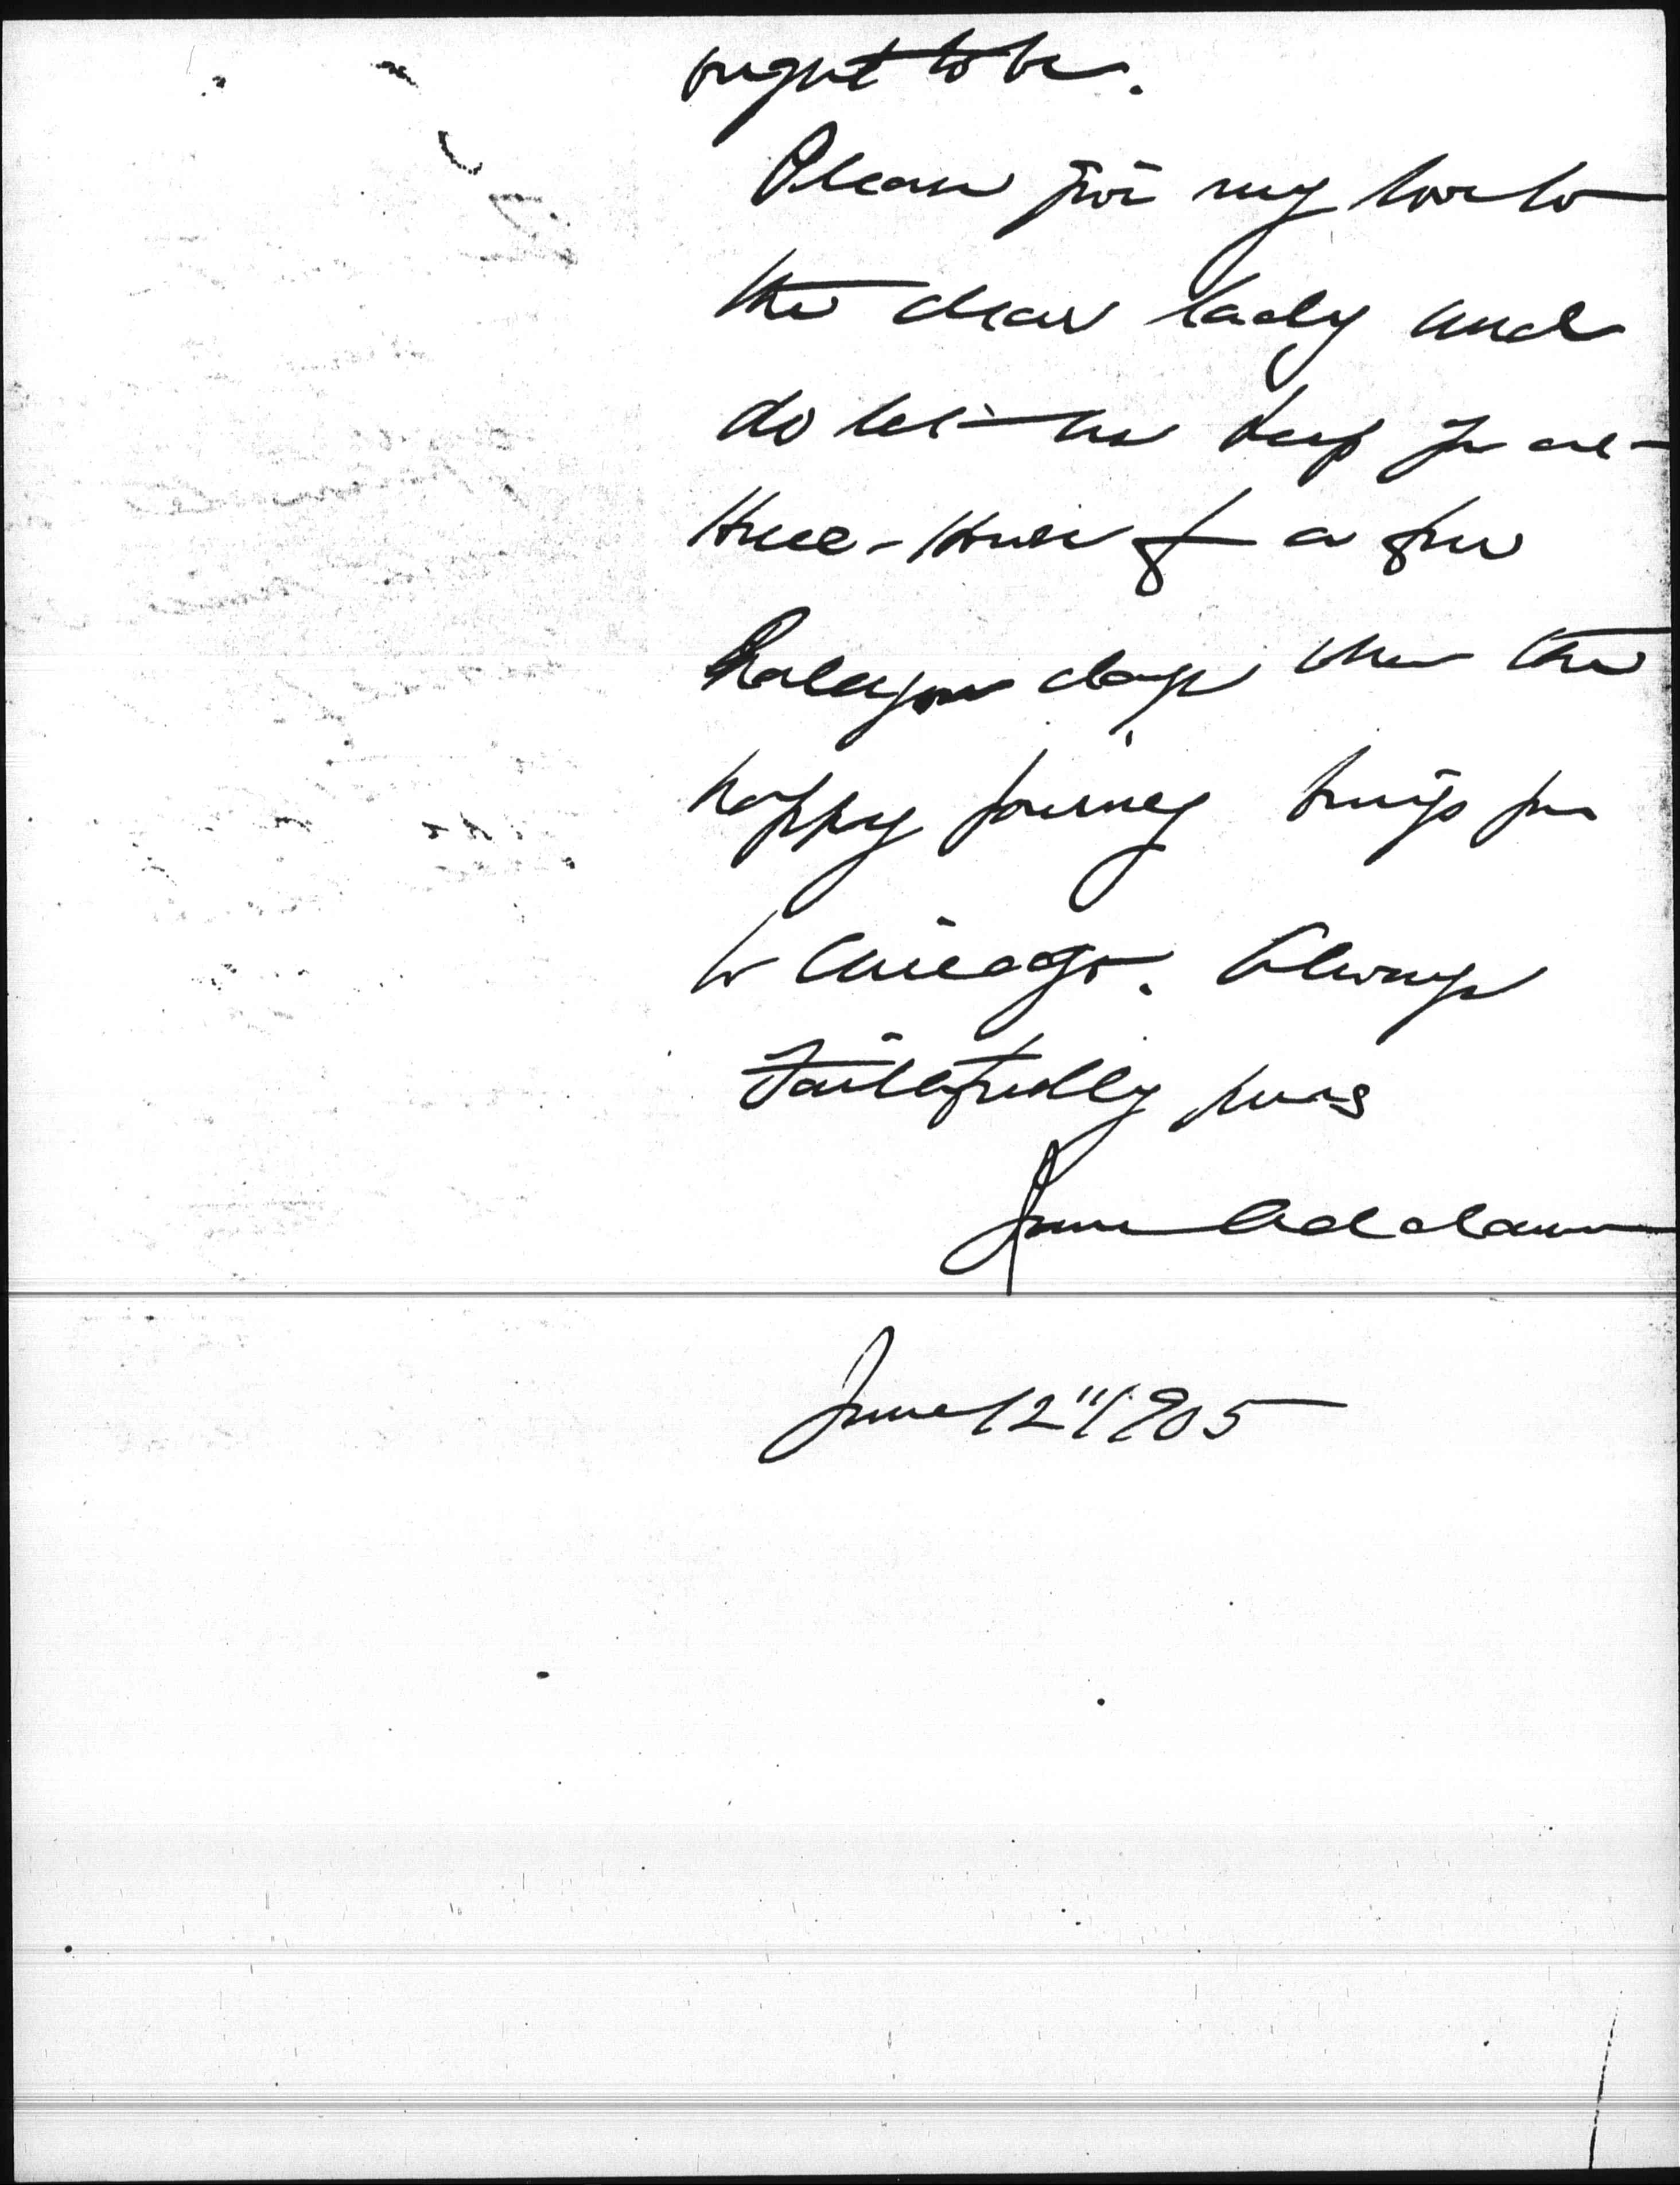 ought to be.
Please give my love to
the dear lady and
do let us keep you at
Hull-House for a few
halcyon days when the
happy journey brings you
to Chicago. Always
faithfully yours
Jane Addams
June 12" 1905